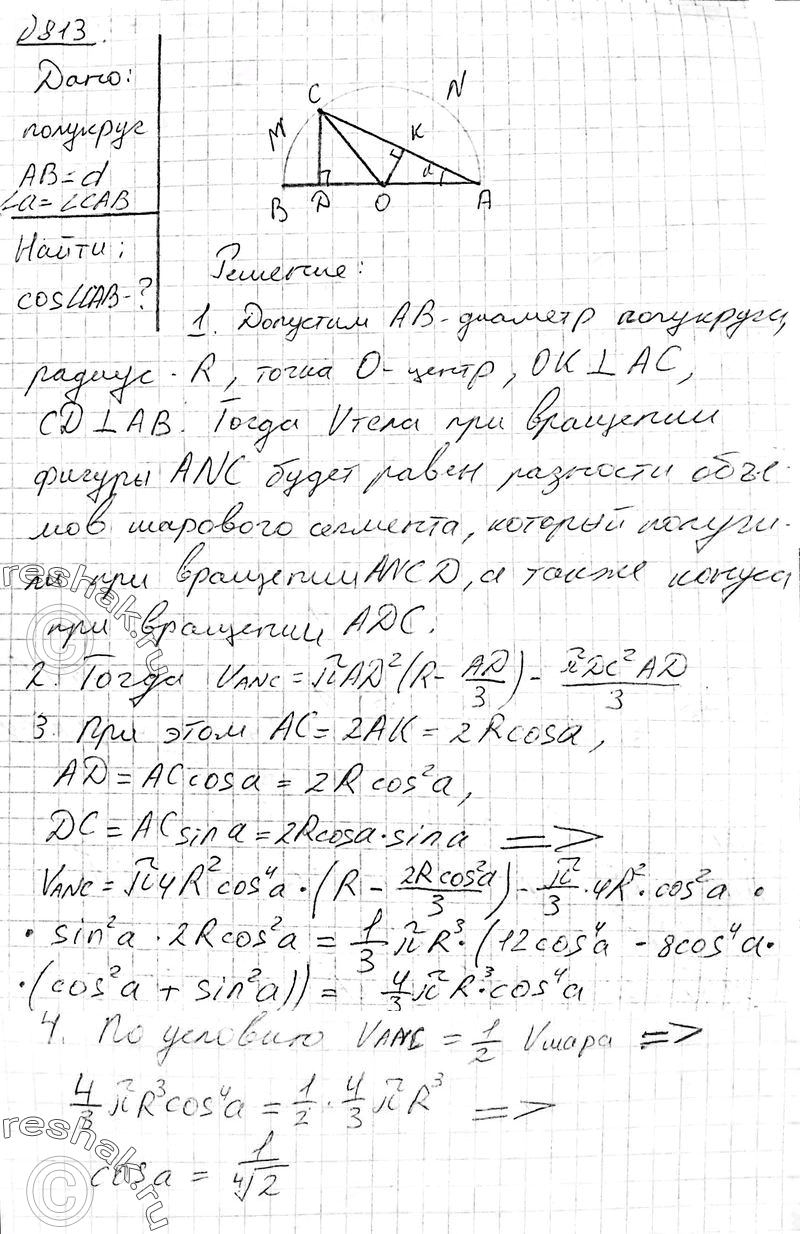 №813.
Дано:
полукруг
AB=d
∠a=∠CAB
Найти:
cos∠CAB-?
C
N
M
K
a
B
D
O
A
Решение:
1. Допустим AB-диаметр полукруга,
радиус - R, точка O-центр, OK⊥AC,
CD⊥AB. Тогда Vтела при вращении
фигуры ANC будет равен разности объе-
мов шарового сегмента, который получи-
ли при вращении ANCD, а также конуса
при вращении ADC.
2. Тогда VANC = πAD²(R - AD/3) - πDC²AD/3
3. При этом AC = 2AK = 2Rcosa,
AD = ACcosa = 2Rcos²a,
DC = ACsina = 2Rcosa·sina =>
VANC = π4R²cos⁴a·(R - 2Rcos²a/3) - π/3·4R²·cos²a ·
· sin²a · 2Rcos²a = 1/3πR³·(12cos⁴a - 8cos⁴a·
·(cos²a + sin²a)) = 4/3πR³·cos⁴a
4. По условию VANC = 1/2 Vшара =>
4/3πR³cos⁴a = 1/2·4/3πR³ =>
cosa = 1/⁴√2
reshak.ru
©
reshak.ru
©